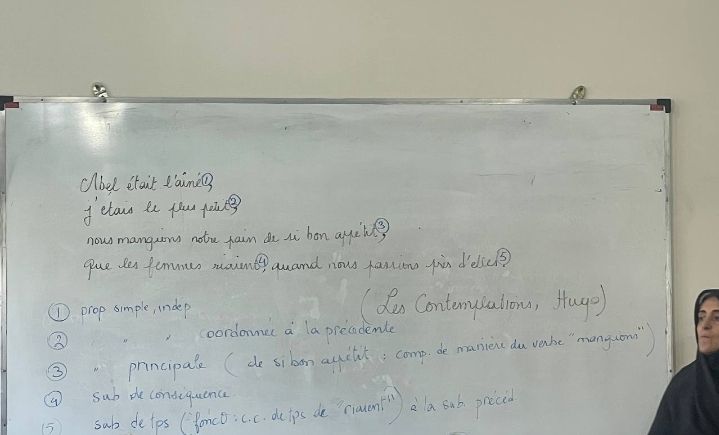 Abel était l'ainé ①,
j'étais le plus petit ②,
nous mangions notre pain de si bon appétit ③,
que les femmes riaient ④, quand nous passions près d'elles ⑤
(Les Contemplations, Hugo)
① prop simple, indep
② " " coordonnée à la précédente
③ " principale ( de si bon appétit : comp. de manière du verbe "mangions")
④ sub de conséquence
⑤ sub de tps (fonct° : c.c. de tps de "riaient") à la sub. précéd